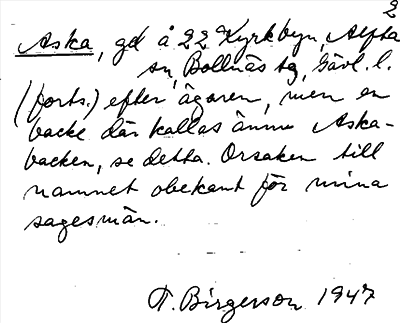 2
Aska, gd å 22 Kyrkbyn, Alfta
sn, Bollnäs tg, Gävl. l.
(forts.) efter ägaren, men en
backe där kallas ännu Aska-
backen, se detta. Orsaken till
namnet obekant för mina
sagesmän.
T. Birgerson 1947